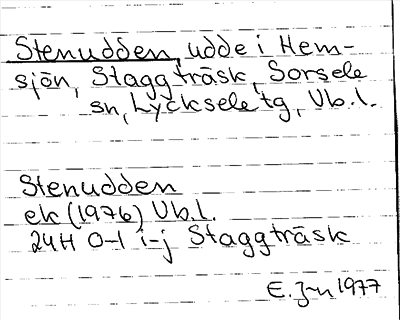 Stenudden, udde i Hem-
sjön, Staggträsk, Sorsele
sn, Lycksele tg, Vb.l.
Stenudden
ek (1976) Vb.l.
24H 0-1 i-j Staggträsk
E. J-n 1977